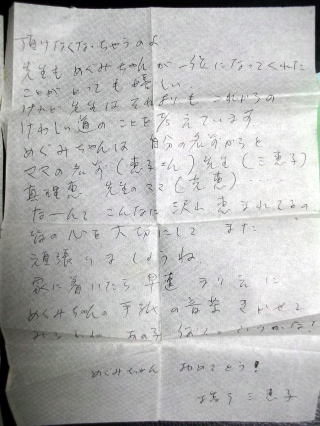 頂けなくなっちゃうのよ
先生もめぐみちゃんが一位になってくれた
ことがとっても嬉しい
けれど先生はそれよりもこれからの
けわしい道のことを考えています
めぐみちゃんは 自分の名前からと
ママの名前(恵子さん)先生(三恵子)
真理恵 先生のママ(恵)
なーんてこんなに沢山 恵まれてるの
皆の心を大切にして また
頑張りましょうね
家に着いたら早速 まりえに
めぐみちゃんの手紙の音楽 きかせて
みましょう あの子
めぐみちゃん おめでとう!
三恵子